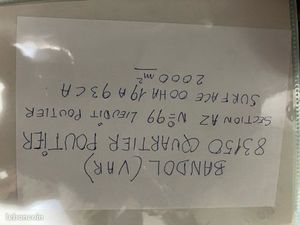 BANDOL (VAR)
83150 QUARTIER POUTIER
SECTION AZ N° 99 LIEUDIT POUTIER
SURFACE 00HA 19A 93CA
2000 m²
leboncoin